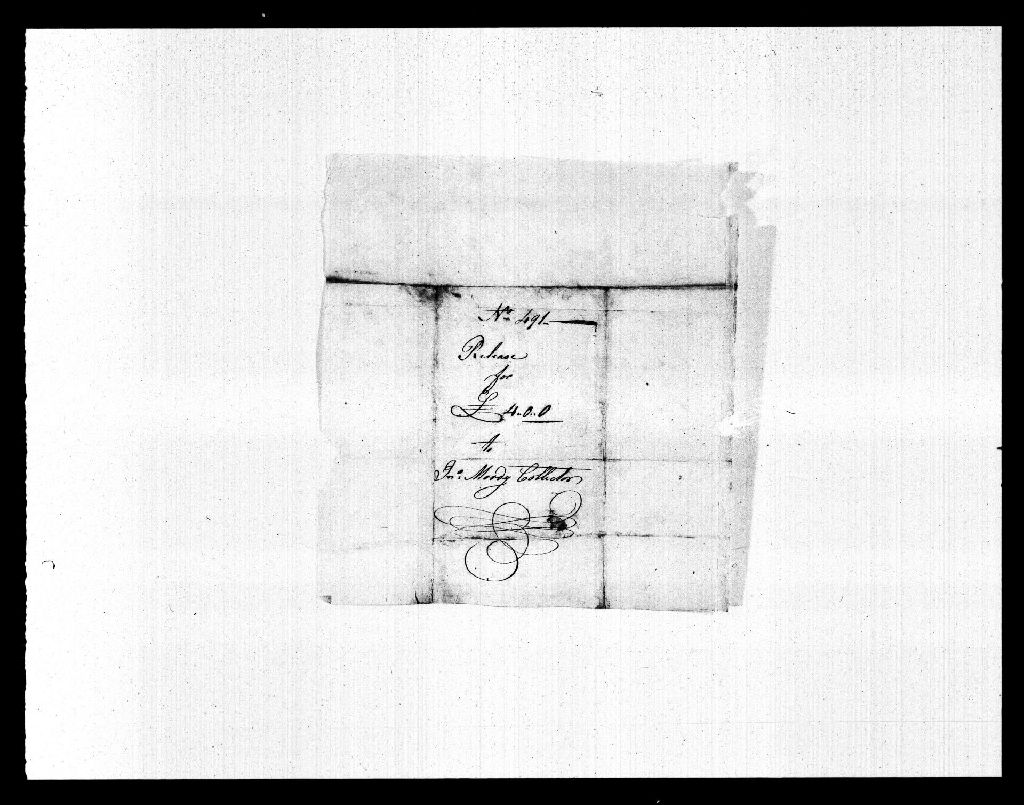 No. 491
Release
for
£ 4.0.0
to
Jno. Moody Collector